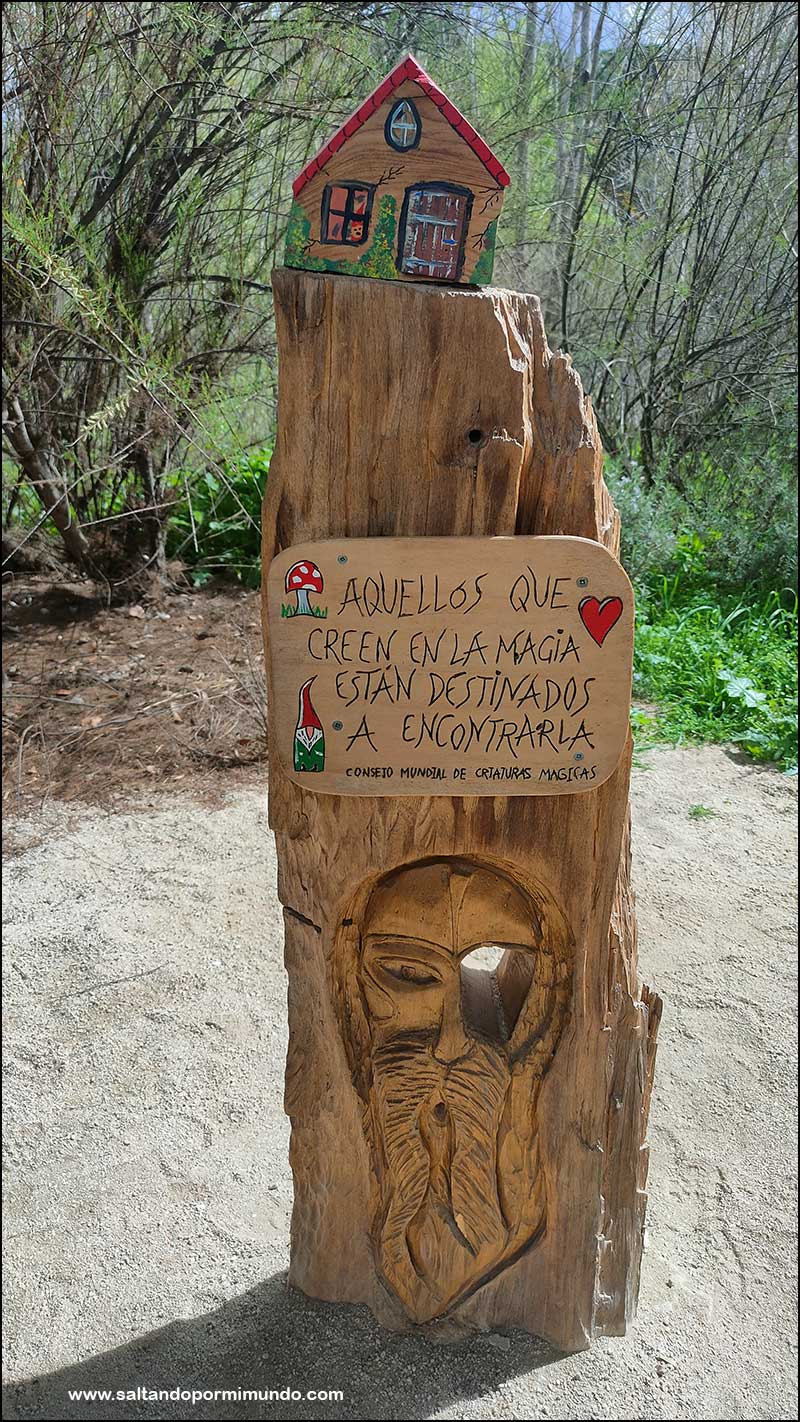 AQUELLOS QUE
CREEN EN LA MAGIA
ESTÁN DESTINADOS
A ENCONTRARLA
CONSEJO MUNDIAL DE CRIATURAS MAGICAS
www.saltandopormimundo.com